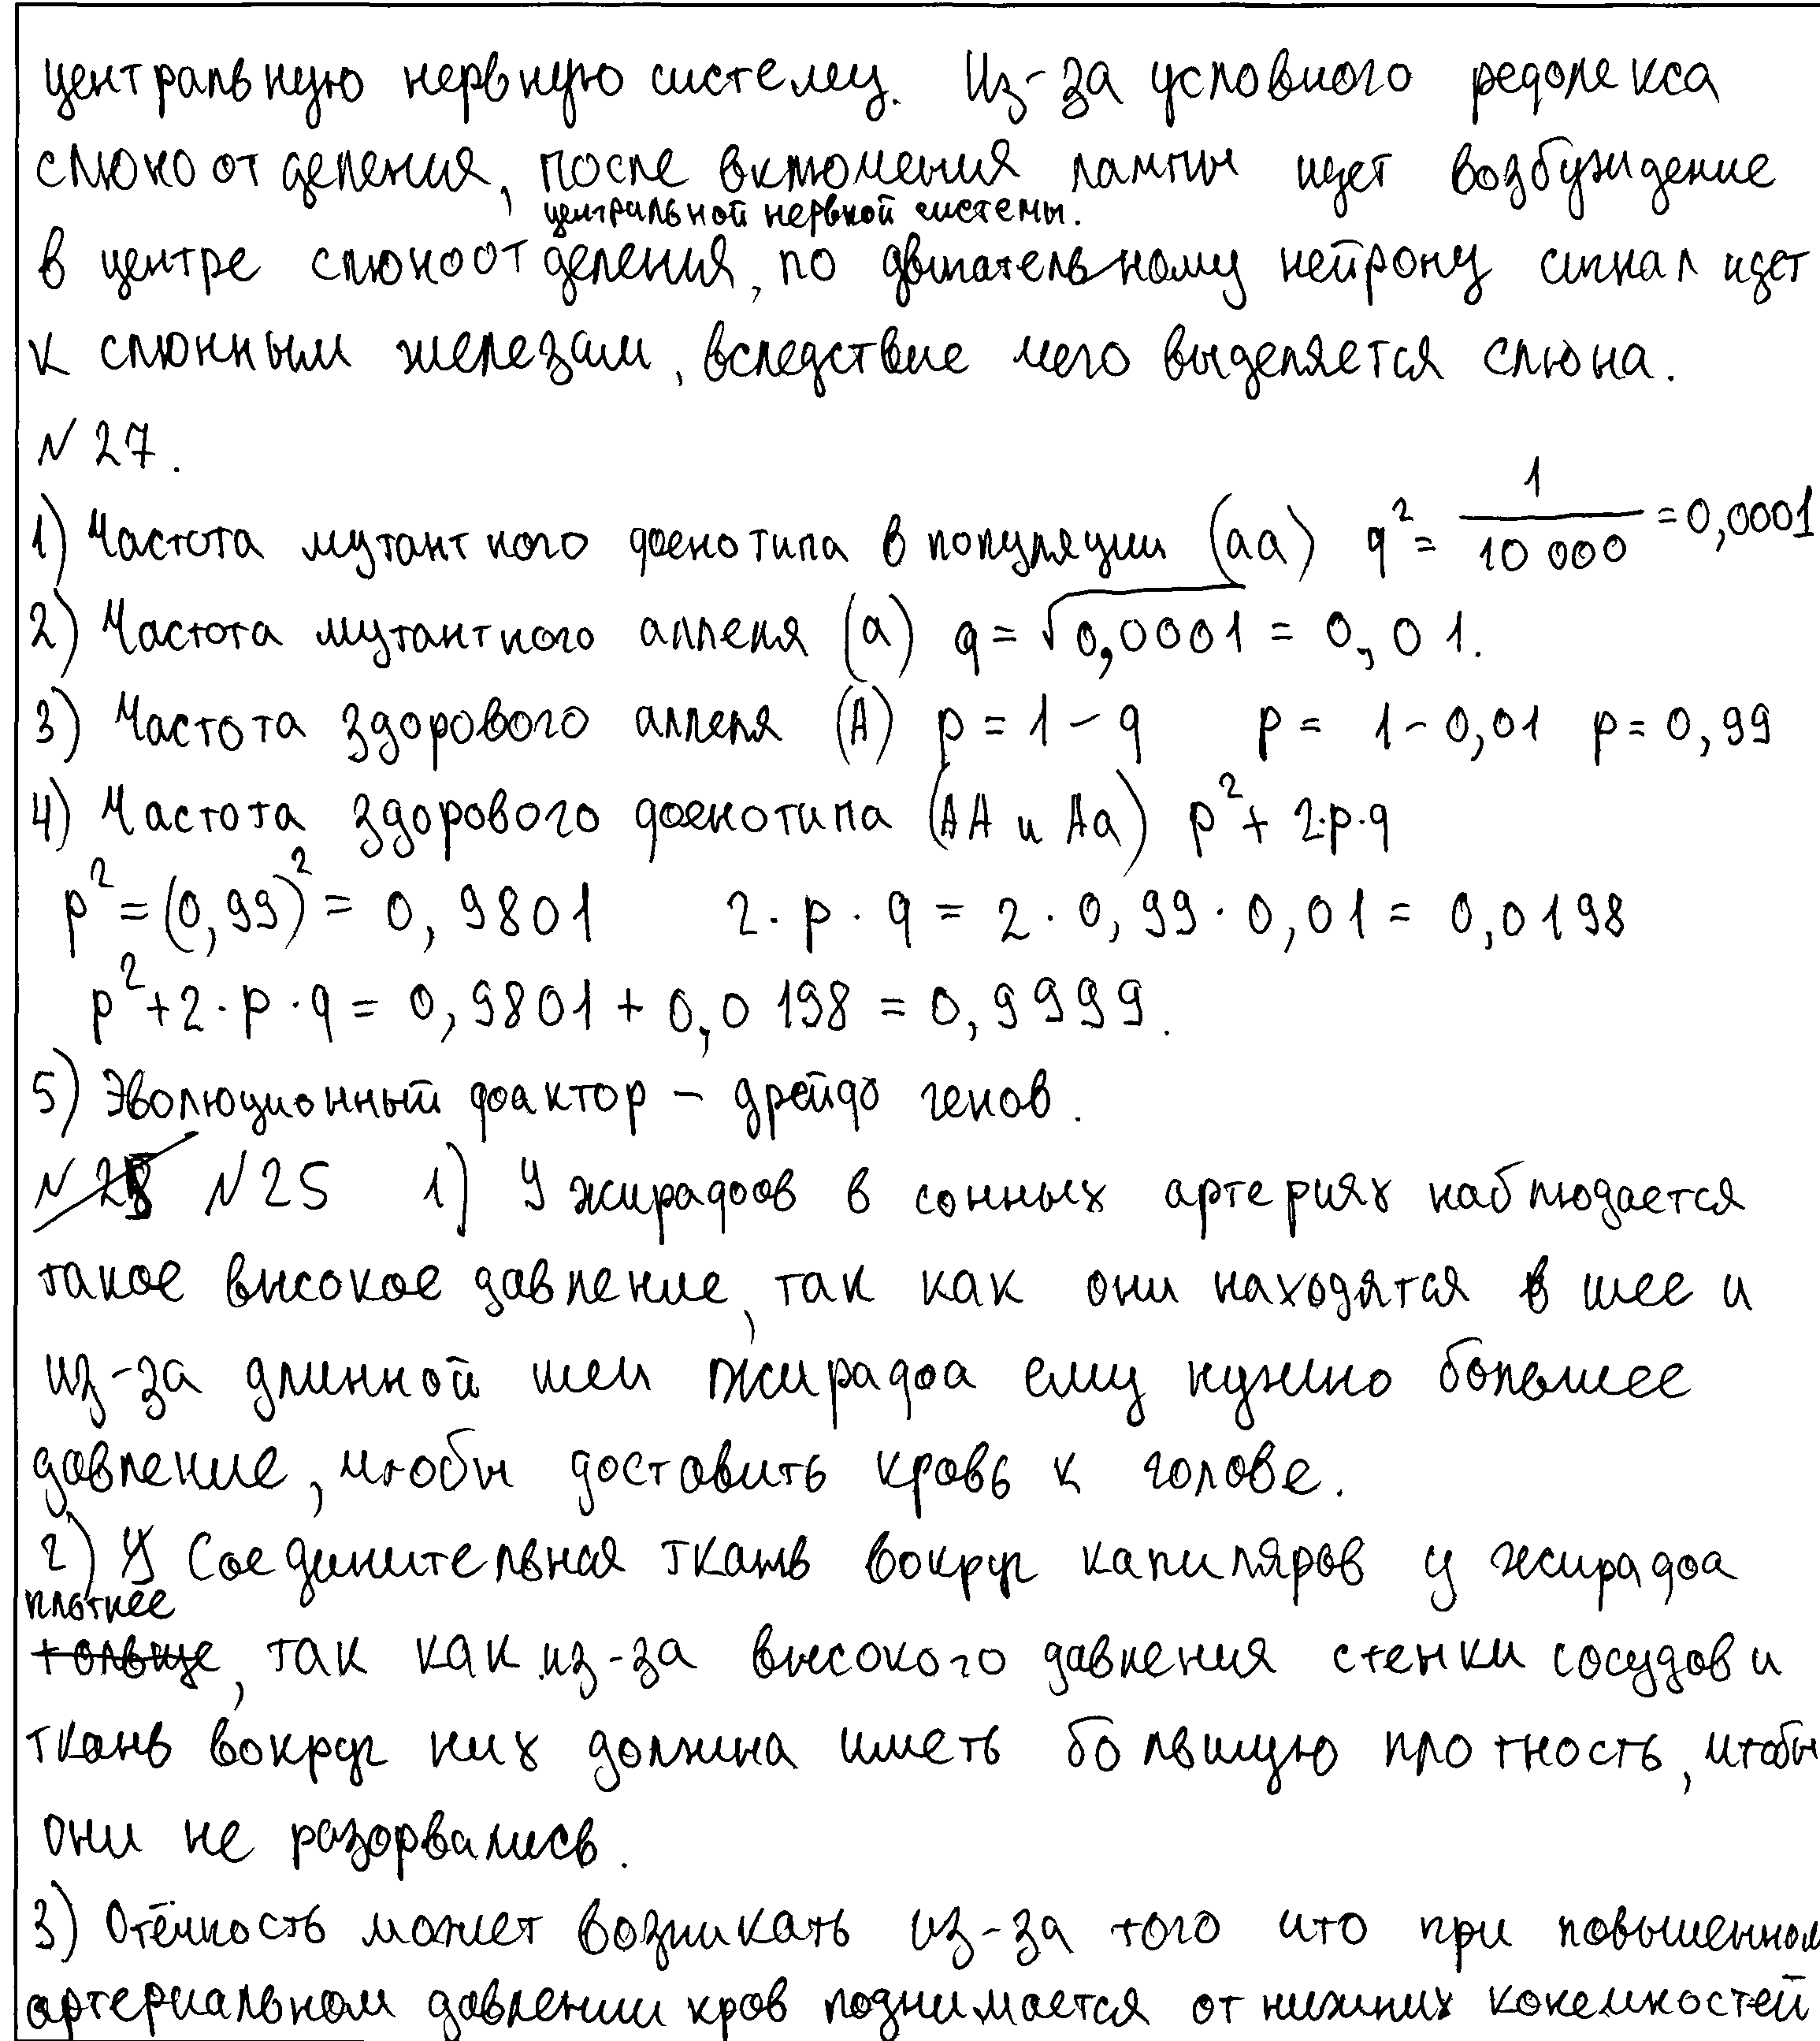 центральную нервную систему. Из-за условного рефлекса
слюноотделения, после включения лампы идет возбуждение
центральной нервной системы.
в центре слюноотделения, по двигательному нейрону сигнал идет
к слюнным железам, вследствие чего выделяется слюна.
№ 27.
1) Частота мутантного фенотипа в популяции (aa) q² = 1/10 000 = 0,0001
2) Частота мутантного аллеля (a) q = √0,0001 = 0,01.
3) Частота здорового аллеля (A) p = 1 – q p = 1 – 0,01 p = 0,99
4) Частота здорового фенотипа (AA и Aa) p² + 2·p·q
p² = (0,99)² = 0,9801 2 · p · q = 2 · 0,99 · 0,01 = 0,0198
p² + 2 · p · q = 0,9801 + 0,0198 = 0,9999.
5) Эволюционный фактор – дрейф генов.
№ 25 1) У жирафов в сонных артериях наблюдается
такое высокое давление, так как они находятся в шее и
из-за длинной шеи жирафа ему нужно большее
давление, чтобы доставить кровь к голове.
2) Соединительная ткань вокруг капиляров у жирафа
плотнее
тольще, так как из-за высокого давления стенки сосудов и
ткань вокруг них должна иметь большую плотность, чтобы
они не разорвались.
3) Отёчность может возникать из-за того что при повышенном
артериальном давлении кров поднимается от нижних конемностей